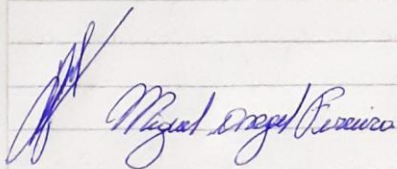 Miguel Angel Ferreira